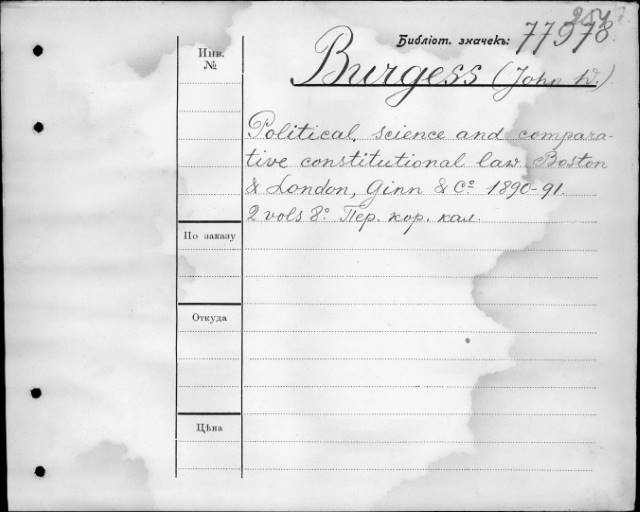 Библіот. значекъ: 77978
Инв.
№
Burgess (John W.)
Political science and compara-
tive constitutional law. Boston
& London, Ginn & Cº 1890-91.
2 vols 8º Пер. кор. кал.
По заказу
Откуда
Цѣна